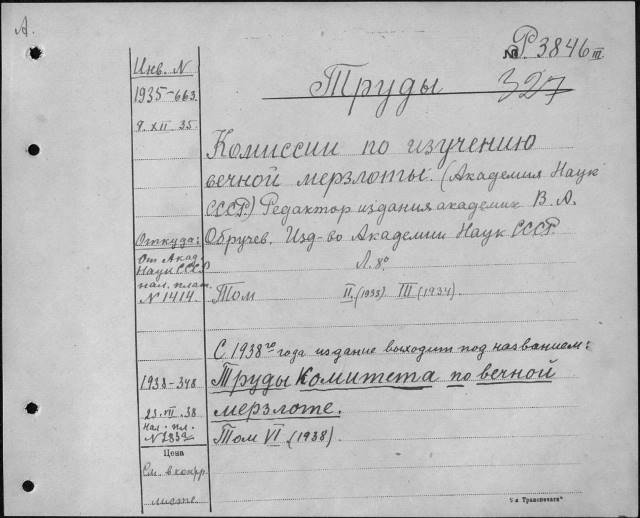 А.
№ Р. 3846 III
Труды 327
Инв. N
1935-663.
9. XII 35.
Комиссии по изучению
вечной мерзлоты. (Академия Наук
СССР.) Редактор издания академик В. А.
Обручев. Изд-во Академии Наук СССР
Л. 8°
Откуда:
От Акад.
Наук СССР
нал. плат.
N 1414.
Том II. (1933) III (1934).
С 1938го года издание выходит под названием:
Труды Комитета по вечной
мерзлоте.
Том VI (1938).
1938-348
23. VII. 38
нал. пл.
Цена
См. в контр.
листе.
9-я Транспечать